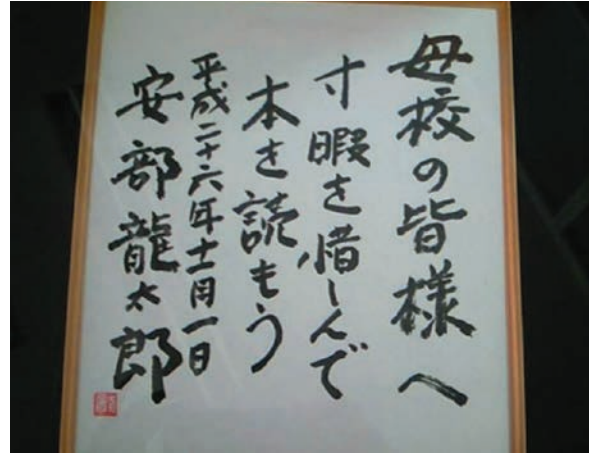 母校の皆様へ
寸暇を惜しんで
本を読もう
平成二十六年十一月一日
安部龍太郎